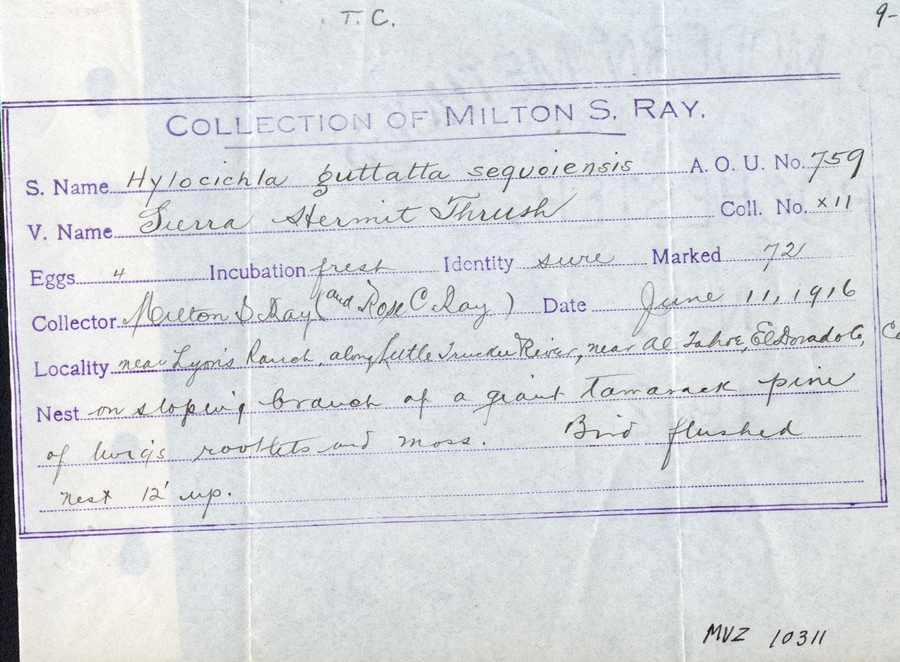 T. C.
9-
COLLECTION OF MILTON S. RAY.
S. Name Hylocichla guttatta sequoiensis A. O. U. No. 759
V. Name Sierra Hermit Thrush Coll. No. x11
Eggs 4 Incubation fresh Identity sure Marked 72
Collector Milton S Ray (and Rose C. Ray) Date June 11, 1916
Locality near Lyon's Ranch, along Little Truckee River, near Al Tahoe, El Dorado Co, Ca
Nest on sloping branch of a giant tamarack pine
of twigs rootlets and moss. Bird flushed
nest 12' up.
MVZ 10311